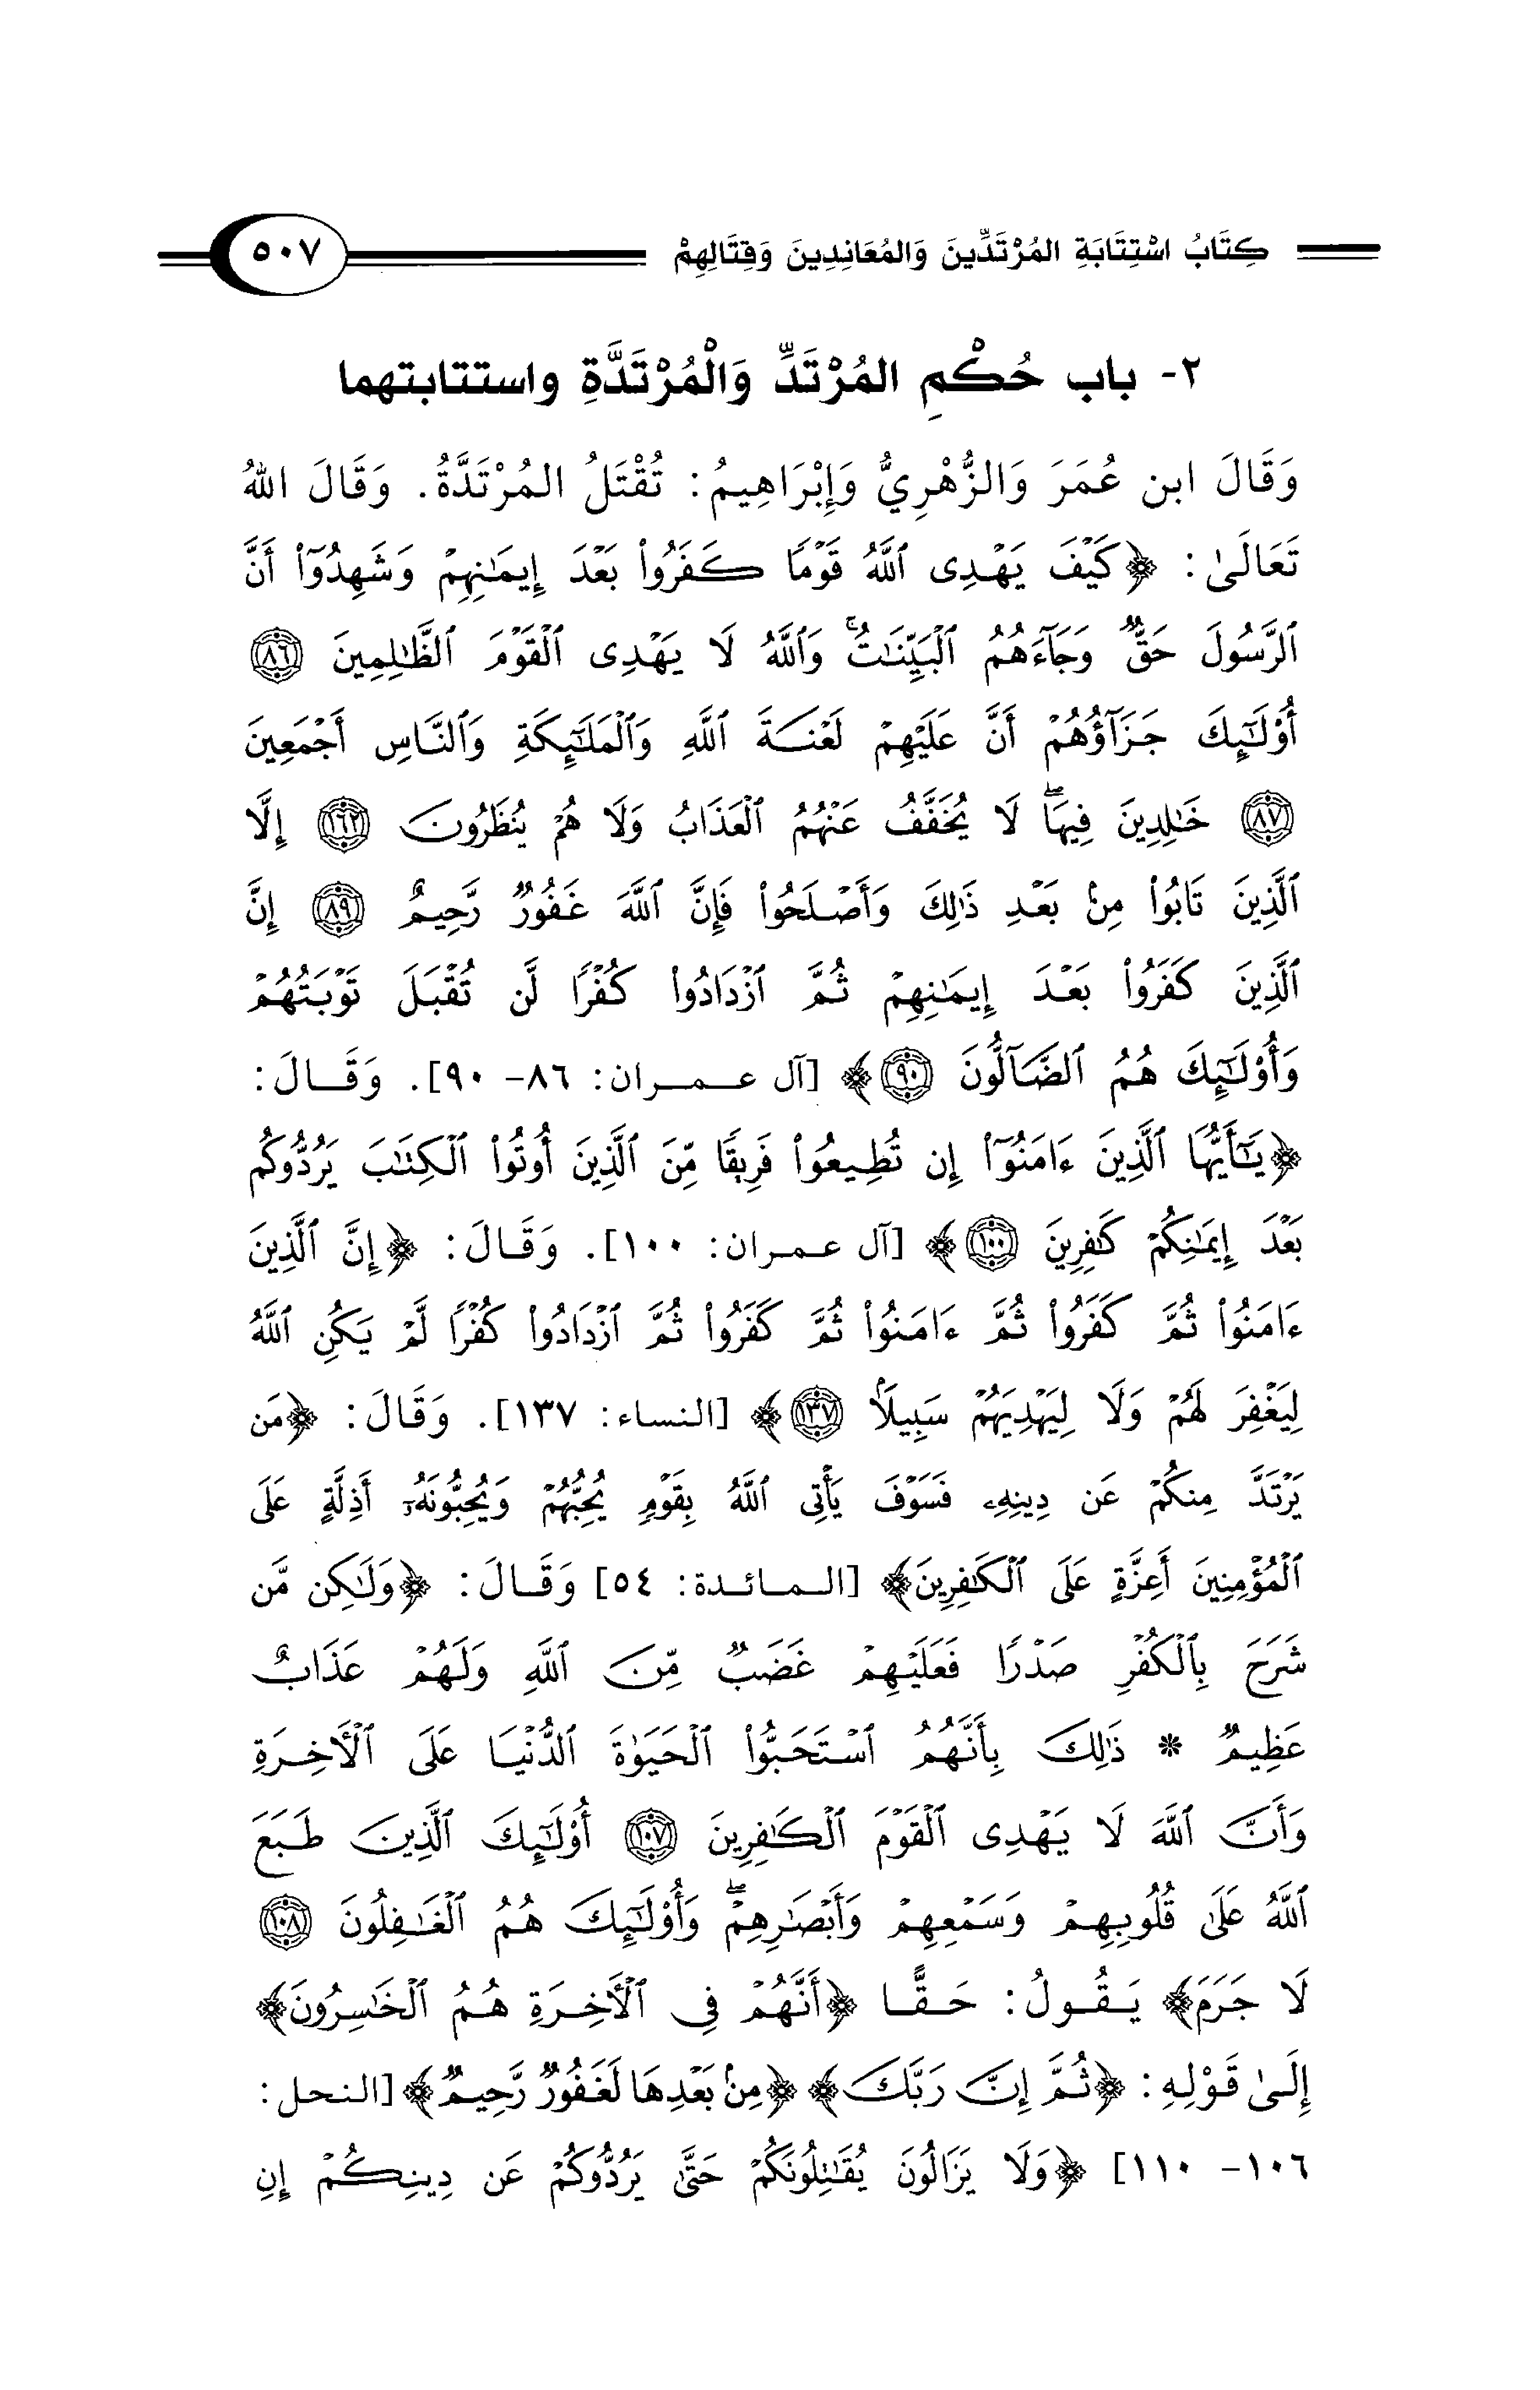 كِتَابُ اسْتِتَابَةِ المُرْتَدِّينَ وَالمُعَانِدِينَ وَقِتَالِهِمْ ٥٠٧
٢- باب حُكْمِ المُرْتَدِّ وَالْمُرْتَدَّةِ واستتابتهما
وَقَالَ ابن عُمَرَ وَالزُّهْرِيُّ وَإِبْرَاهِيمُ: تُقْتَلُ المُرْتَدَّةُ. وَقَالَ اللهُ
تَعَالَىٰ: ﴿كَيْفَ يَهْدِى ٱللَّهُ قَوْمًا كَفَرُوا۟ بَعْدَ إِيمَـٰنِهِمْ وَشَهِدُوٓا۟ أَنَّ
ٱلرَّسُولَ حَقٌّ وَجَآءَهُمُ ٱلْبَيِّنَـٰتُ ۚ وَٱللَّهُ لَا يَهْدِى ٱلْقَوْمَ ٱلظَّـٰلِمِينَ ٨٦
أُو۟لَـٰٓئِكَ جَزَآؤُهُمْ أَنَّ عَلَيْهِمْ لَعْنَةَ ٱللَّهِ وَٱلْمَلَـٰٓئِكَةِ وَٱلنَّاسِ أَجْمَعِينَ
٨٧ خَـٰلِدِينَ فِيهَا ۖ لَا يُخَفَّفُ عَنْهُمُ ٱلْعَذَابُ وَلَا هُمْ يُنظَرُونَ ١٦٢ إِلَّا
ٱلَّذِينَ تَابُوا۟ مِنۢ بَعْدِ ذَٰلِكَ وَأَصْلَحُوا۟ فَإِنَّ ٱللَّهَ غَفُورٌ رَّحِيمٌ ٨٩ إِنَّ
ٱلَّذِينَ كَفَرُوا۟ بَعْدَ إِيمَـٰنِهِمْ ثُمَّ ٱزْدَادُوا۟ كُفْرًا لَّن تُقْبَلَ تَوْبَتُهُمْ
وَأُو۟لَـٰٓئِكَ هُمُ ٱلضَّآلُّونَ ٩٠﴾ [آل عمران: ٨٦- ٩٠]. وَقَالَ:
﴿يَـٰٓأَيُّهَا ٱلَّذِينَ ءَامَنُوٓا۟ إِن تُطِيعُوا۟ فَرِيقًا مِّنَ ٱلَّذِينَ أُوتُوا۟ ٱلْكِتَـٰبَ يَرُدُّوكُم
بَعْدَ إِيمَـٰنِكُمْ كَـٰفِرِينَ ١٠٠﴾ [آل عمران: ١٠٠]. وَقَالَ: ﴿إِنَّ ٱلَّذِينَ
ءَامَنُوا۟ ثُمَّ كَفَرُوا۟ ثُمَّ ءَامَنُوا۟ ثُمَّ كَفَرُوا۟ ثُمَّ ٱزْدَادُوا۟ كُفْرًا لَّمْ يَكُنِ ٱللَّهُ
لِيَغْفِرَ لَهُمْ وَلَا لِيَهْدِيَهُمْ سَبِيلًۢا ١٣٧﴾ [النساء: ١٣٧]. وَقَالَ: ﴿مَن
يَرْتَدَّ مِنكُمْ عَن دِينِهِۦ فَسَوْفَ يَأْتِى ٱللَّهُ بِقَوْمٍ يُحِبُّهُمْ وَيُحِبُّونَهُۥٓ أَذِلَّةٍ عَلَى
ٱلْمُؤْمِنِينَ أَعِزَّةٍ عَلَى ٱلْكَـٰفِرِينَ﴾ [المائدة: ٥٤] وَقَالَ: ﴿وَلَـٰكِن مَّن
شَرَحَ بِٱلْكُفْرِ صَدْرًا فَعَلَيْهِمْ غَضَبٌ مِّنَ ٱللَّهِ وَلَهُمْ عَذَابٌ
عَظِيمٌ * ذَٰلِكَ بِأَنَّهُمُ ٱسْتَحَبُّوا۟ ٱلْحَيَوٰةَ ٱلدُّنْيَا عَلَى ٱلْـَٔاخِرَةِ
وَأَنَّ ٱللَّهَ لَا يَهْدِى ٱلْقَوْمَ ٱلْكَـٰفِرِينَ ١٠٧ أُو۟لَـٰٓئِكَ ٱلَّذِينَ طَبَعَ
ٱللَّهُ عَلَىٰ قُلُوبِهِمْ وَسَمْعِهِمْ وَأَبْصَـٰرِهِمْ ۖ وَأُو۟لَـٰٓئِكَ هُمُ ٱلْغَـٰفِلُونَ ١٠٨
لَا جَرَمَ﴾ يَقُولُ: حَقًّا ﴿أَنَّهُمْ فِى ٱلْـَٔاخِرَةِ هُمُ ٱلْخَـٰسِرُونَ﴾
إِلَىٰ قَوْلِهِ: ﴿ثُمَّ إِنَّ رَبَّكَ﴾ ﴿مِنۢ بَعْدِهَا لَغَفُورٌ رَّحِيمٌ﴾ [النحل:
١٠٦- ١١٠] ﴿وَلَا يَزَالُونَ يُقَـٰتِلُونَكُمْ حَتَّىٰ يَرُدُّوكُمْ عَن دِينِكُمْ إِنِ